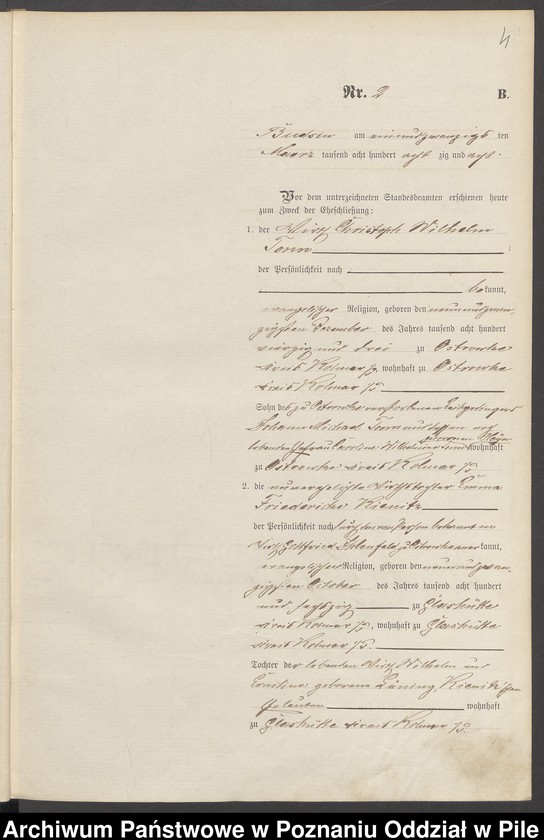 4
Nr. 2 B.
Budsin am einundzwanzigs ten
Maerz tausend acht hundert acht zig und acht.
Vor dem unterzeichneten Standesbeamten erschienen heute
zum Zweck der Eheschließung:
1. der Wirth Christoph Wilhelm
Tonn
der Persönlichkeit nach
bekannt,
evangelischer Religion, geboren den neunundzwan-
zigsten Dezember des Jahres tausend acht hundert
vierzig und drei zu Ostrowke
Kreis Kolmar i/P., wohnhaft zu Ostrowke
Kreis Kolmar i/P.
Sohn des zu Ostrowke verstorbenen
Johann Michael Tonn und dessen
lebenden Ehefrau Caroline geborenen wohnhaft
zu Ostrowke Kreis Kolmar i/P.
2. die unverehelichte Wirthstochter Emma
Friederike Kienitz
der Persönlichkeit nach durch den von Person bekannten
Wirth Gottfried zu Ostrowke anerkannt,
evangelischer Religion, geboren den neunundzwan-
zigsten October des Jahres tausend acht hundert
und sechszig zu Glashütte
Kreis Kolmar i/P., wohnhaft zu Glashütte
Kreis Kolmar i/P.
Tochter der lebenden Wirth Wilhelm und
Ernstine geborene Lüning, Kienitz'schen
Eheleuten wohnhaft
zu Glashütte Kreis Kolmar i/P.
Archiwum Państwowe w Poznaniu Oddział w Pile